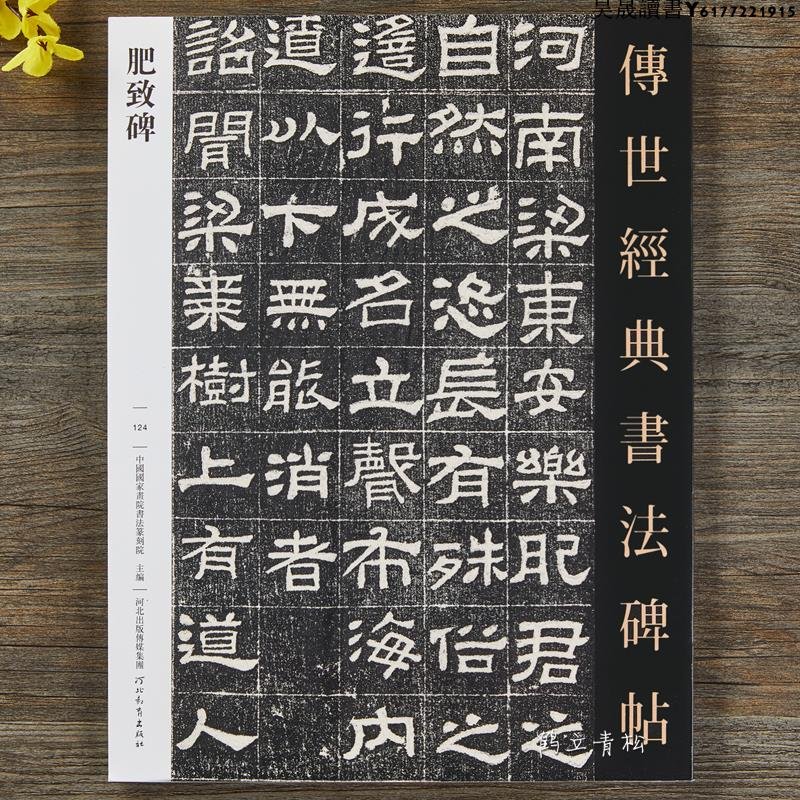 昊晟讀書Y6177221915
傳世經典書法碑帖
河南梁東安樂肥君之
自然之恣長有殊俗之
遙行成名立聲布海内
遼以下無能消者
詔聞梁棗樹上有道人
肥致碑
124
中國國家畫院書法篆刻院 主編
河北出版傳媒集團
河北教育出版社
鶴立青松